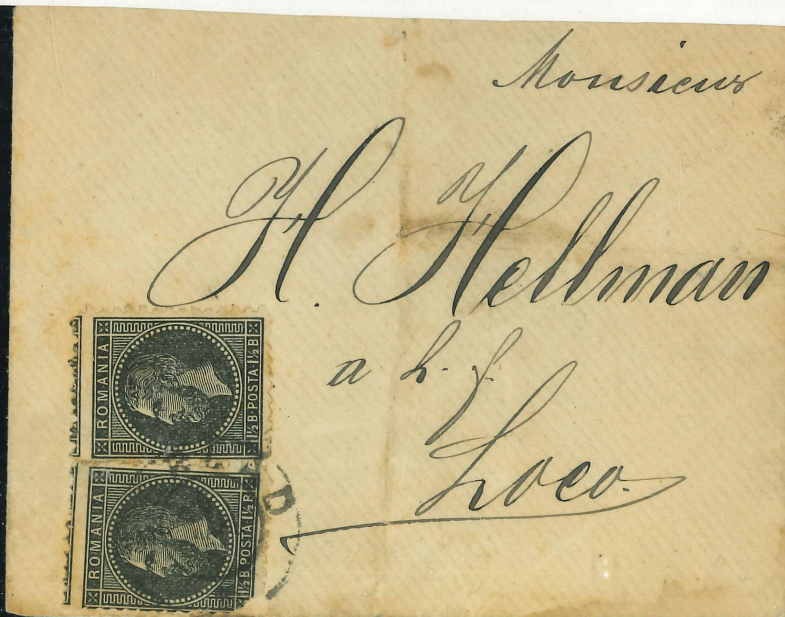 Monsieur
H. Hellman
a h. f.
Loco.
ROMANIA
1½ B. POSTA. 1½ B
ROMANIA
1½ B POSTA. 1½ B